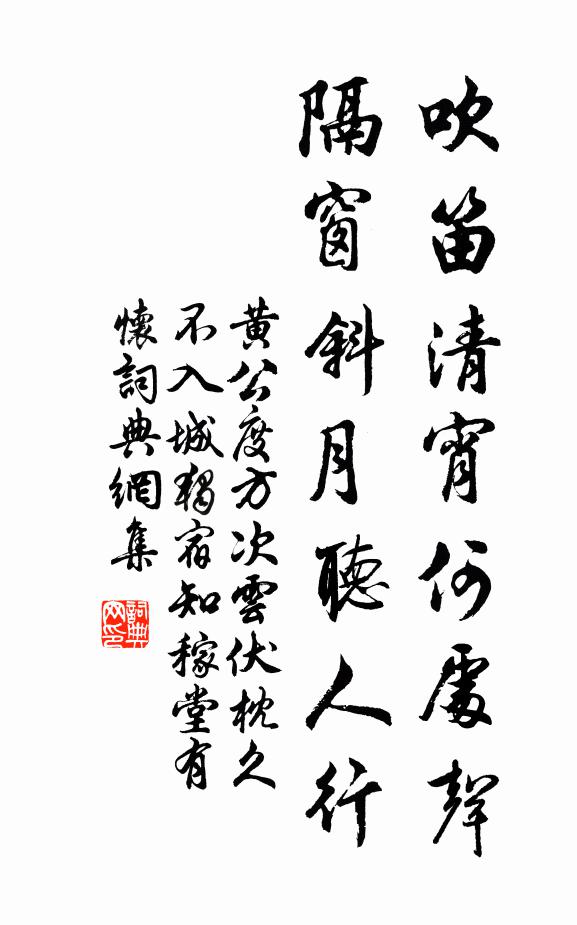 吹笛清宵何處聲
隔窗斜月聽人行
黃公度方次雲伏枕久
不入城獨宿知稼堂有
懷詞典網集
詞典
网印